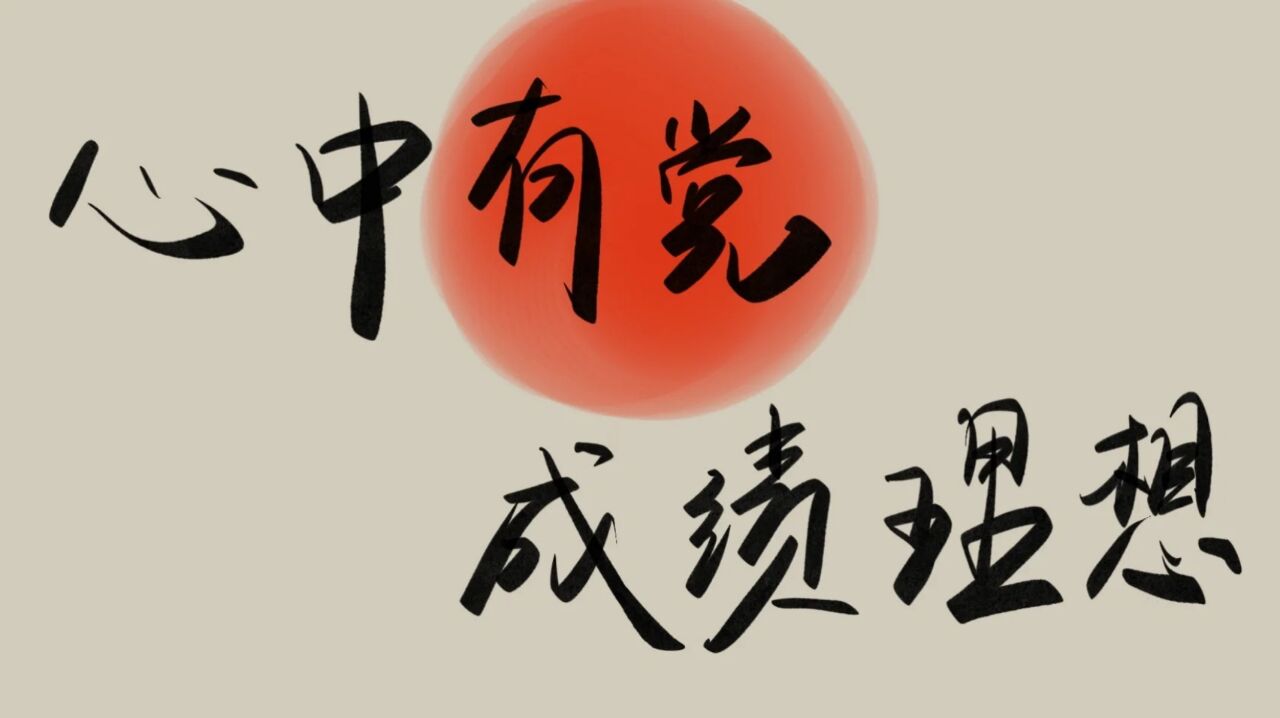 心中有党
成绩理想